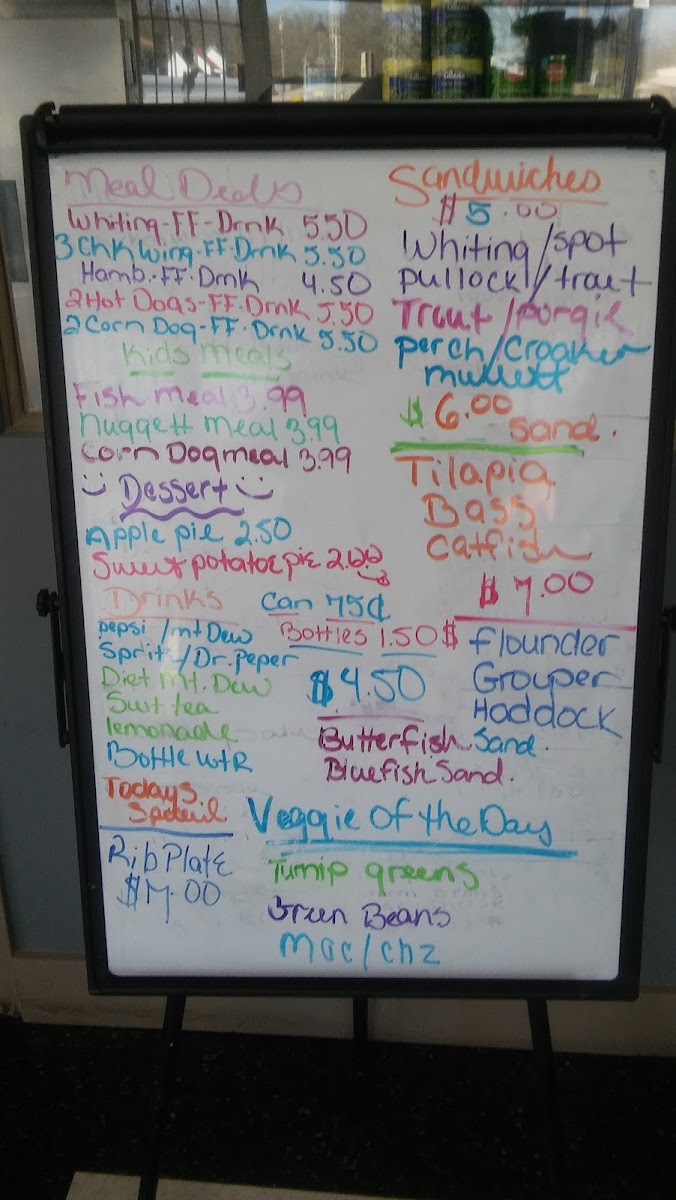 Meal Deals
Whiting-FF-Drnk 5.50
3 Chk Wing-FF-Drnk 5.50
Hamb.-FF-Drnk 4.50
2 Hot Dogs-FF-Drnk 5.50
2 Corn Dog-FF-Drnk 5.50
Kids Meals
Fish meal 3.99
Nuggett meal 3.99
Corn Dog meal 3.99
Dessert
Apple pie 2.50
Sweet potatoe pie 2.00
Drinks
Can 75¢
Bottles 1.50
pepsi / mt Dew
Sprite / Dr. Peper
Diet. Mt. Dew
Swt tea
lemonade
Bottle wtR
Todays
Special
Rib Plate
$7.00
Sandwiches
$5.00
Whiting / spot
pullock / trout
Trout / porgie
perch / Croaker
mullett
$6.00 sand.
Tilapia
Bass
Catfish
$7.00
$ flounder
Grouper
Hoddock
Sand.
$4.50
Butterfish
Bluefish Sand.
Veggie Of the Day
Turnip greens
Green Beans
Mac / chz